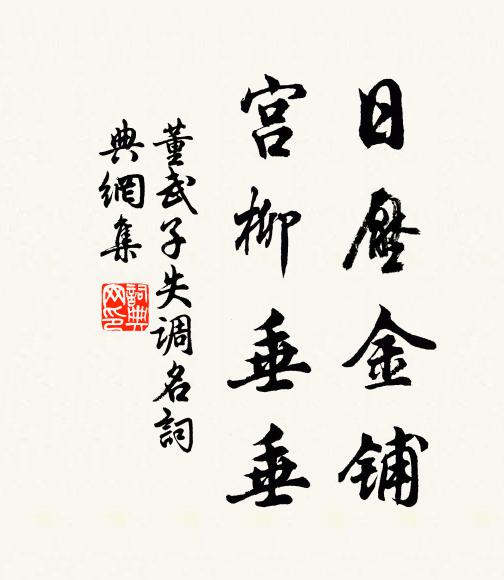 日壓金铺
宫柳垂垂
董武子失调名詞
典網集
詞典網印